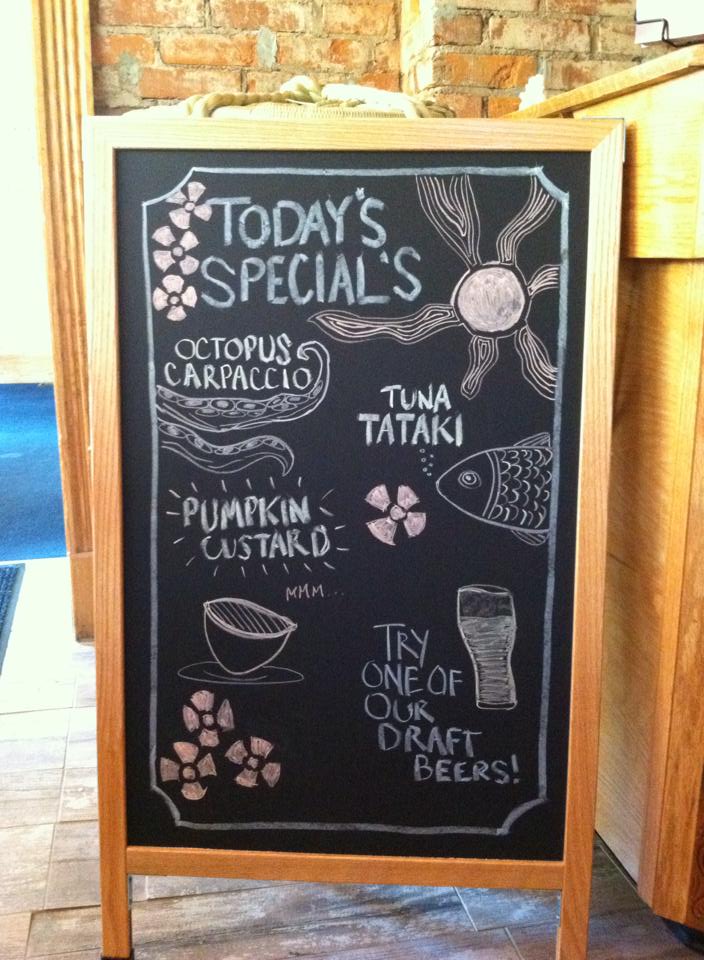 TODAY'S
SPECIAL'S
OCTOPUS
CARPACCIO
TUNA
TATAKI
PUMPKIN
CUSTARD
MMM...
TRY
ONE OF
OUR
DRAFT
BEERS!